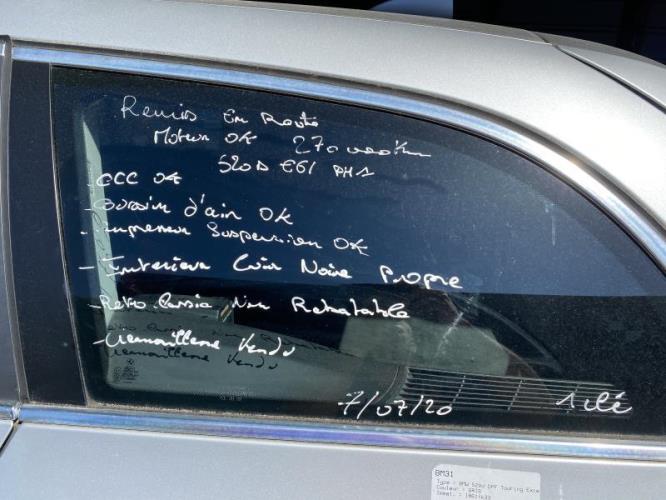 Remis En Route
Moteur OK 270 000 km
520D E61 PH1
- CCC OK
- Coussin d'air OK
- Compresseur Suspension OK
- Interieur Cuir Noire Propre
- Retro Rabatable
- Vendu
7/07/20 1 clé
BM31
Type : BMW 520d DPF Touring Exce
Couleur : GRIS